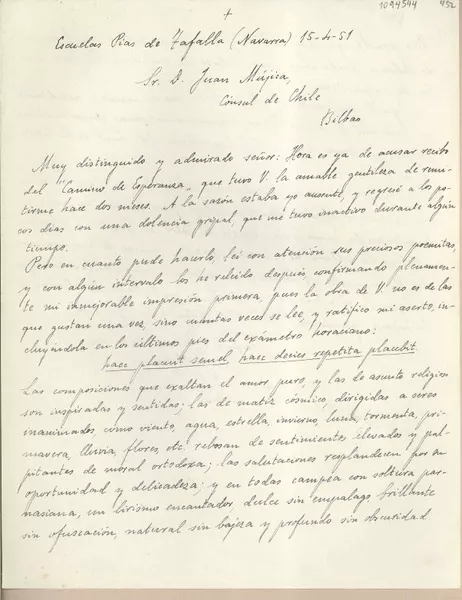 1094544 452
+
Escuelas Pias de Tafalla (Navarra) 15-4-51
Sr. D. Juan Mújica,
Cónsul de Chile
Bilbao
Muy distinguido y admirado señor: Hora es ya de acusar recibo
del "Camino de Esperanza", que tuvo V. la amable gentileza de remi-
tirme hace dos meses. A la sazón estaba yo ausente, y regresé a los po-
cos días con una dolencia gripal, que me tuvo inactivo durante algún
tiempo.
Pero en cuanto pude hacerlo, leí con atención sus preciosos poemitas,
y con algún intervalo los he releído después, confirmando plenamen-
te mi inmejorable impresión primera, pues la obra de V. no es de las
que gustan una vez, sino cuantas veces se lee, y ratifico mi aserto, in-
cluyéndola en los últimos pies del exámetro horaciano:
haec placuit semel, haec decies repetita placebit.
Las composiciones que exaltan el amor puro, y las de asunto religioso
son inspiradas y sentidas; las de matiz cósmico dirigidas a seres
inanimados como viento, agua, estrella, invierno, luna, tormenta, pri-
mavera, lluvia, flores, etc. rebosan de sentimientos elevados y pal-
pitantes de moral ortodoxa; las salutaciones resplandecen por su
oportunidad y delicadeza: y en todas campea con soltura par-
nasiana, un lirismo encantador, dulce sin empalago brillante
sin ofuscación, natural sin bajeza y profundo sin obscuridad